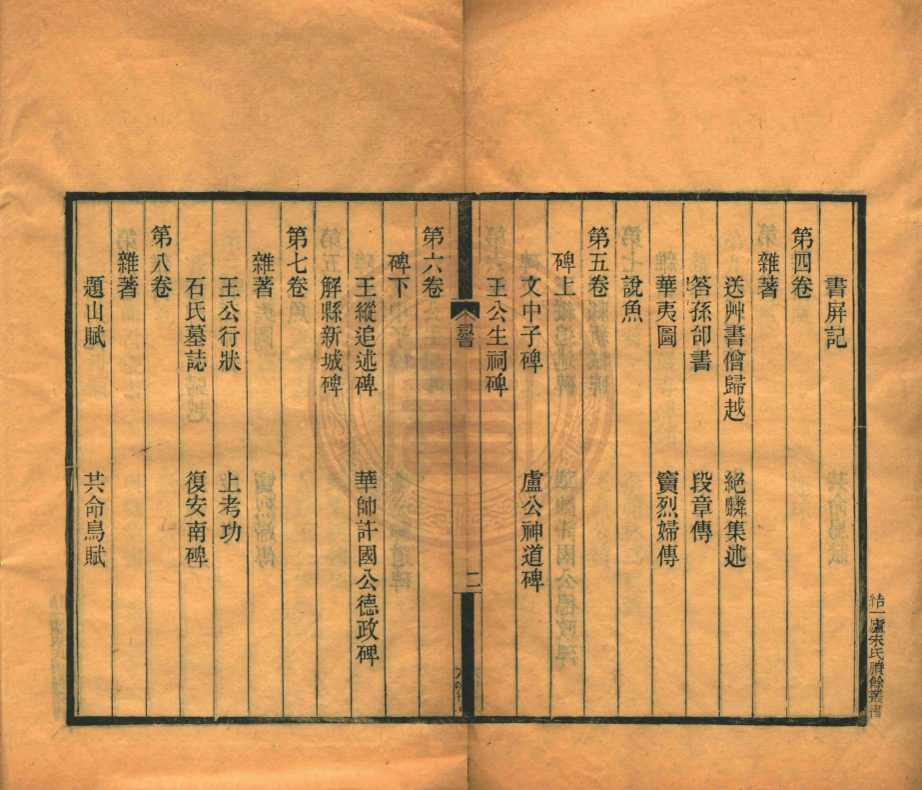 書屏記
第四卷
雜著
送艸書僧歸越 絕麟集述
荅孫郃書 段章傳
華夷圖 竇烈婦傳
說魚
第五卷
碑上
文中子碑 盧公神道碑
王公生祠碑
司空表聖文集
二
第六卷
碑下
王縱追述碑 華帥許國公德政碑
解縣新城碑
第七卷
雜著
王公行狀 上考功
石氏墓誌 復安南碑
第八卷
雜著
題山賦 共命鳥賦
結一廬朱氏賸餘叢書